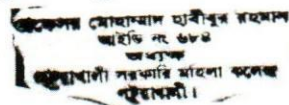 মোহাম্মদ হাবীবুর রহমান
আইডি নং ৬৮৪
অধ্যক্ষ
পটুয়াখালী সরকারি মহিলা কলেজ
পটুয়াখালী।